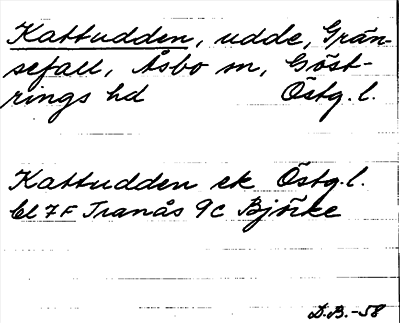 Kattudden, udde, Grän-
sefall, Åsbo sn, Göst-
rings hd Östg. l.
Kattudden ek Östg. l.
bl 7F Tranås 9c Björke
D.B.-58